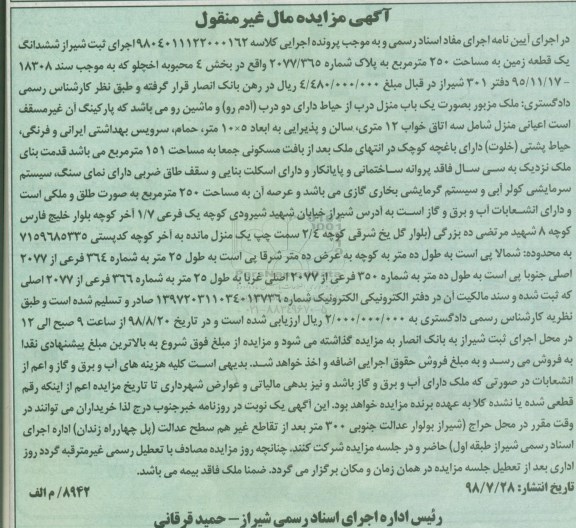 آگهی مزایده مال غیر منقول
در اجرای آیین نامه اجرای مفاد اسناد رسمی و به موجب پرونده اجرایی کلاسه ۹۸۰۴۰۱۱۱۲۲۰۰۰۱۶۲ اجرای ثبت شیراز ششدانگ
یک قطعه زمین به مساحت ۲۵۰ مترمربع به پلاک شماره ۲۰۷۷/۳۶۵ واقع در بخش ۴ محبوبه اخجلو که به موجب سند ۱۸۳۰۸
– ۹۵/۱۱/۱۷ دفتر ۳۰۱ شیراز در قبال مبلغ ۴/۴۸۰/۰۰۰/۰۰۰ ریال در رهن بانک انصار قرار گرفته و طبق نظر کارشناس رسمی
دادگستری: ملک مزبور بصورت یک باب منزل درب از حیاط دارای دو درب (آدم رو) و ماشین رو می باشد که پارکینگ آن غیرمسقف
است اعیانی منزل شامل سه اتاق خواب ۱۲ متری، سالن و پذیرایی به ابعاد ۵×۱۰ متر، حمام، سرویس بهداشتی ایرانی و فرنگی،
حیاط پشتی (خلوت) دارای باغچه کوچک در انتهای ملک بعد از بافت مسکونی جمعا به مساحت ۱۵۱ مترمربع می باشد قدمت بنای
ملک نزدیک به سی سال فاقد پروانه ساختمانی و پایانکار و دارای اسکلت بنایی و سقف طاق ضربی دارای نمای سنگ، سیستم
سرمایشی کولر آبی و سیستم گرمایشی بخاری گازی می باشد و عرصه آن به مساحت ۲۵۰ مترمربع به صورت طلق و ملکی است
و دارای انشعابات آب و برق و گاز است به آدرس شیراز خیابان شهید شیرودی کوچه یک فرعی ۱/۷ آخر کوچه بلوار خلیج فارس
کوچه ۸ شهید مرتضی ده بزرگی (بلوار گل یخ شرقی کوچه ۲/۴ سمت چپ یک منزل مانده به آخر کوچه کدپستی ۷۱۵۹۶۸۵۳۳۵
به محدوده: شمالا پی است به طول ده متر به کوچه به عرض ده متر شرقا پی است به طول ۲۵ متر به شماره ۳۶۴ فرعی از ۲۰۷۷
اصلی جنوبا پی است به طول ده متر به شماره ۳۵۰ فرعی از ۲۰۷۷ اصلی غربا به طول ۲۵ متر به شماره ۳۶۶ فرعی از ۲۰۷۷ اصلی
که ثبت شده و سند مالکیت آن در دفتر الکترونیکی الکترونیک شماره ۱۳۹۷۲۰۳۱۱۰۳۴۰۱۳۷۳۶ صادر و تسلیم شده است و طبق
نظریه کارشناس رسمی دادگستری به ۲/۰۰۰/۰۰۰/۰۰۰ ریال ارزیابی شده است و در تاریخ ۹۸/۸/۲۰ از ساعت ۹ صبح الی ۱۲
در محل اجرای ثبت شیراز به بانک انصار به مزایده گذاشته می شود و مزایده از مبلغ فوق شروع به بالاترین مبلغ پیشنهادی نقدا
به فروش می رسد و به مبلغ فروش حقوق اجرایی اضافه و اخذ خواهد شد. بدیهی است کلیه هزینه های آب و برق و گاز و اعم از
انشعابات در صورتی که ملک دارای آب و برق و گاز باشد و نیز بدهی مالیاتی و عوارض شهرداری تا تاریخ مزایده اعم از اینکه رقم
قطعی شده یا نشده کلا به عهده برنده مزایده خواهد بود. این آگهی یک نوبت در روزنامه خبرجنوب درج لذا خریداران می توانند در
وقت مقرر در محل حراج (شیراز بولوار عدالت جنوبی ۳۰۰ متر بعد از تقاطع غیر هم سطح عدالت (پل چهارراه زندان) اداره اجرای
اسناد رسمی شیراز طبقه اول) حاضر و در جلسه مزایده شرکت کنند. چنانچه روز مزایده مصادف با تعطیل رسمی غیرمترقبه گردد روز
اداری بعد از تعطیل جلسه مزایده در همان زمان و مکان برگزار می گردد. ضمنا ملک فاقد بیمه می باشد.
تاریخ انتشار: ۹۸/۷/۲۸
۸۹۴۲/ م الف
رئیس اداره اجرای اسناد رسمی شیراز – حمید قرقانی